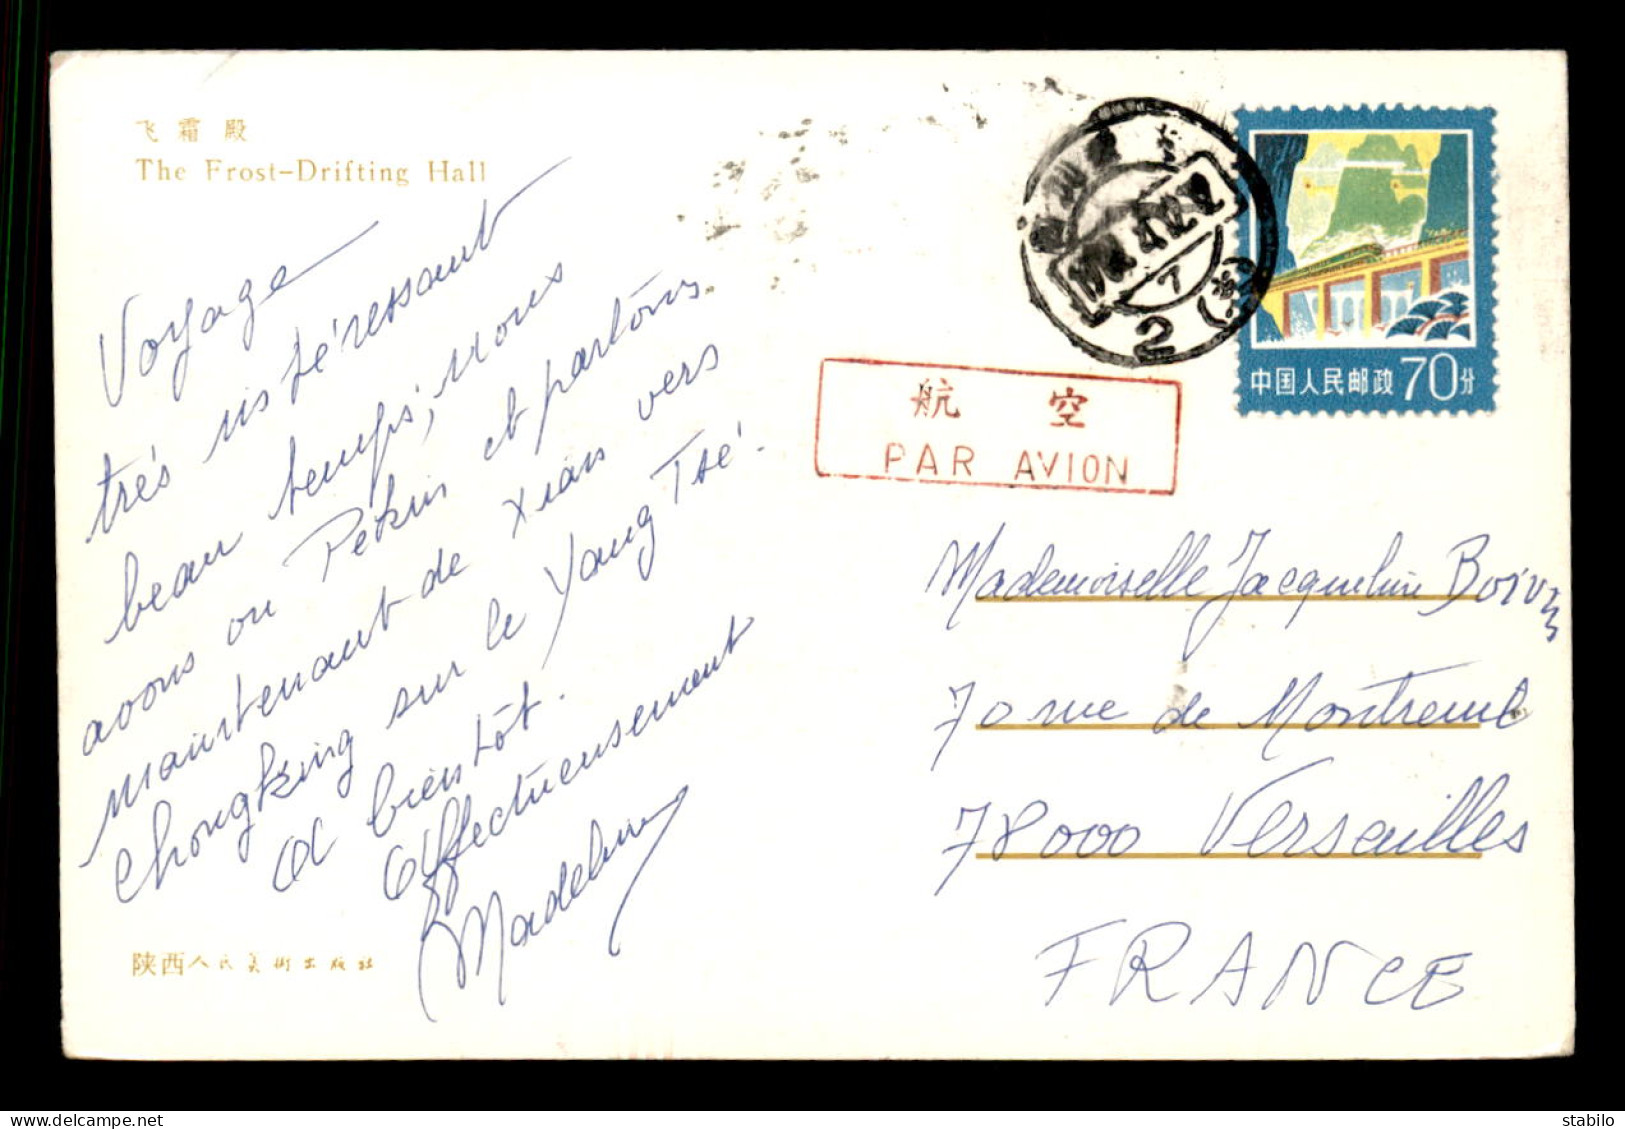 飞霜殿
The Frost-Drifting Hall
Voyage
très intéressant
beau temps, nous
avons vu Pékin et partons
maintenant de Xian vers
Chongking sur le Yang Tsé.
A bientôt.
Affectueusement
Madeleine
陕西人民美术出版社
2
7
中国人民邮政 70分
航 空
PAR AVION
Mademoiselle Jacqueline Boivin
70 rue de Montreuil
78000 Versailles
FRANCE
stabilo